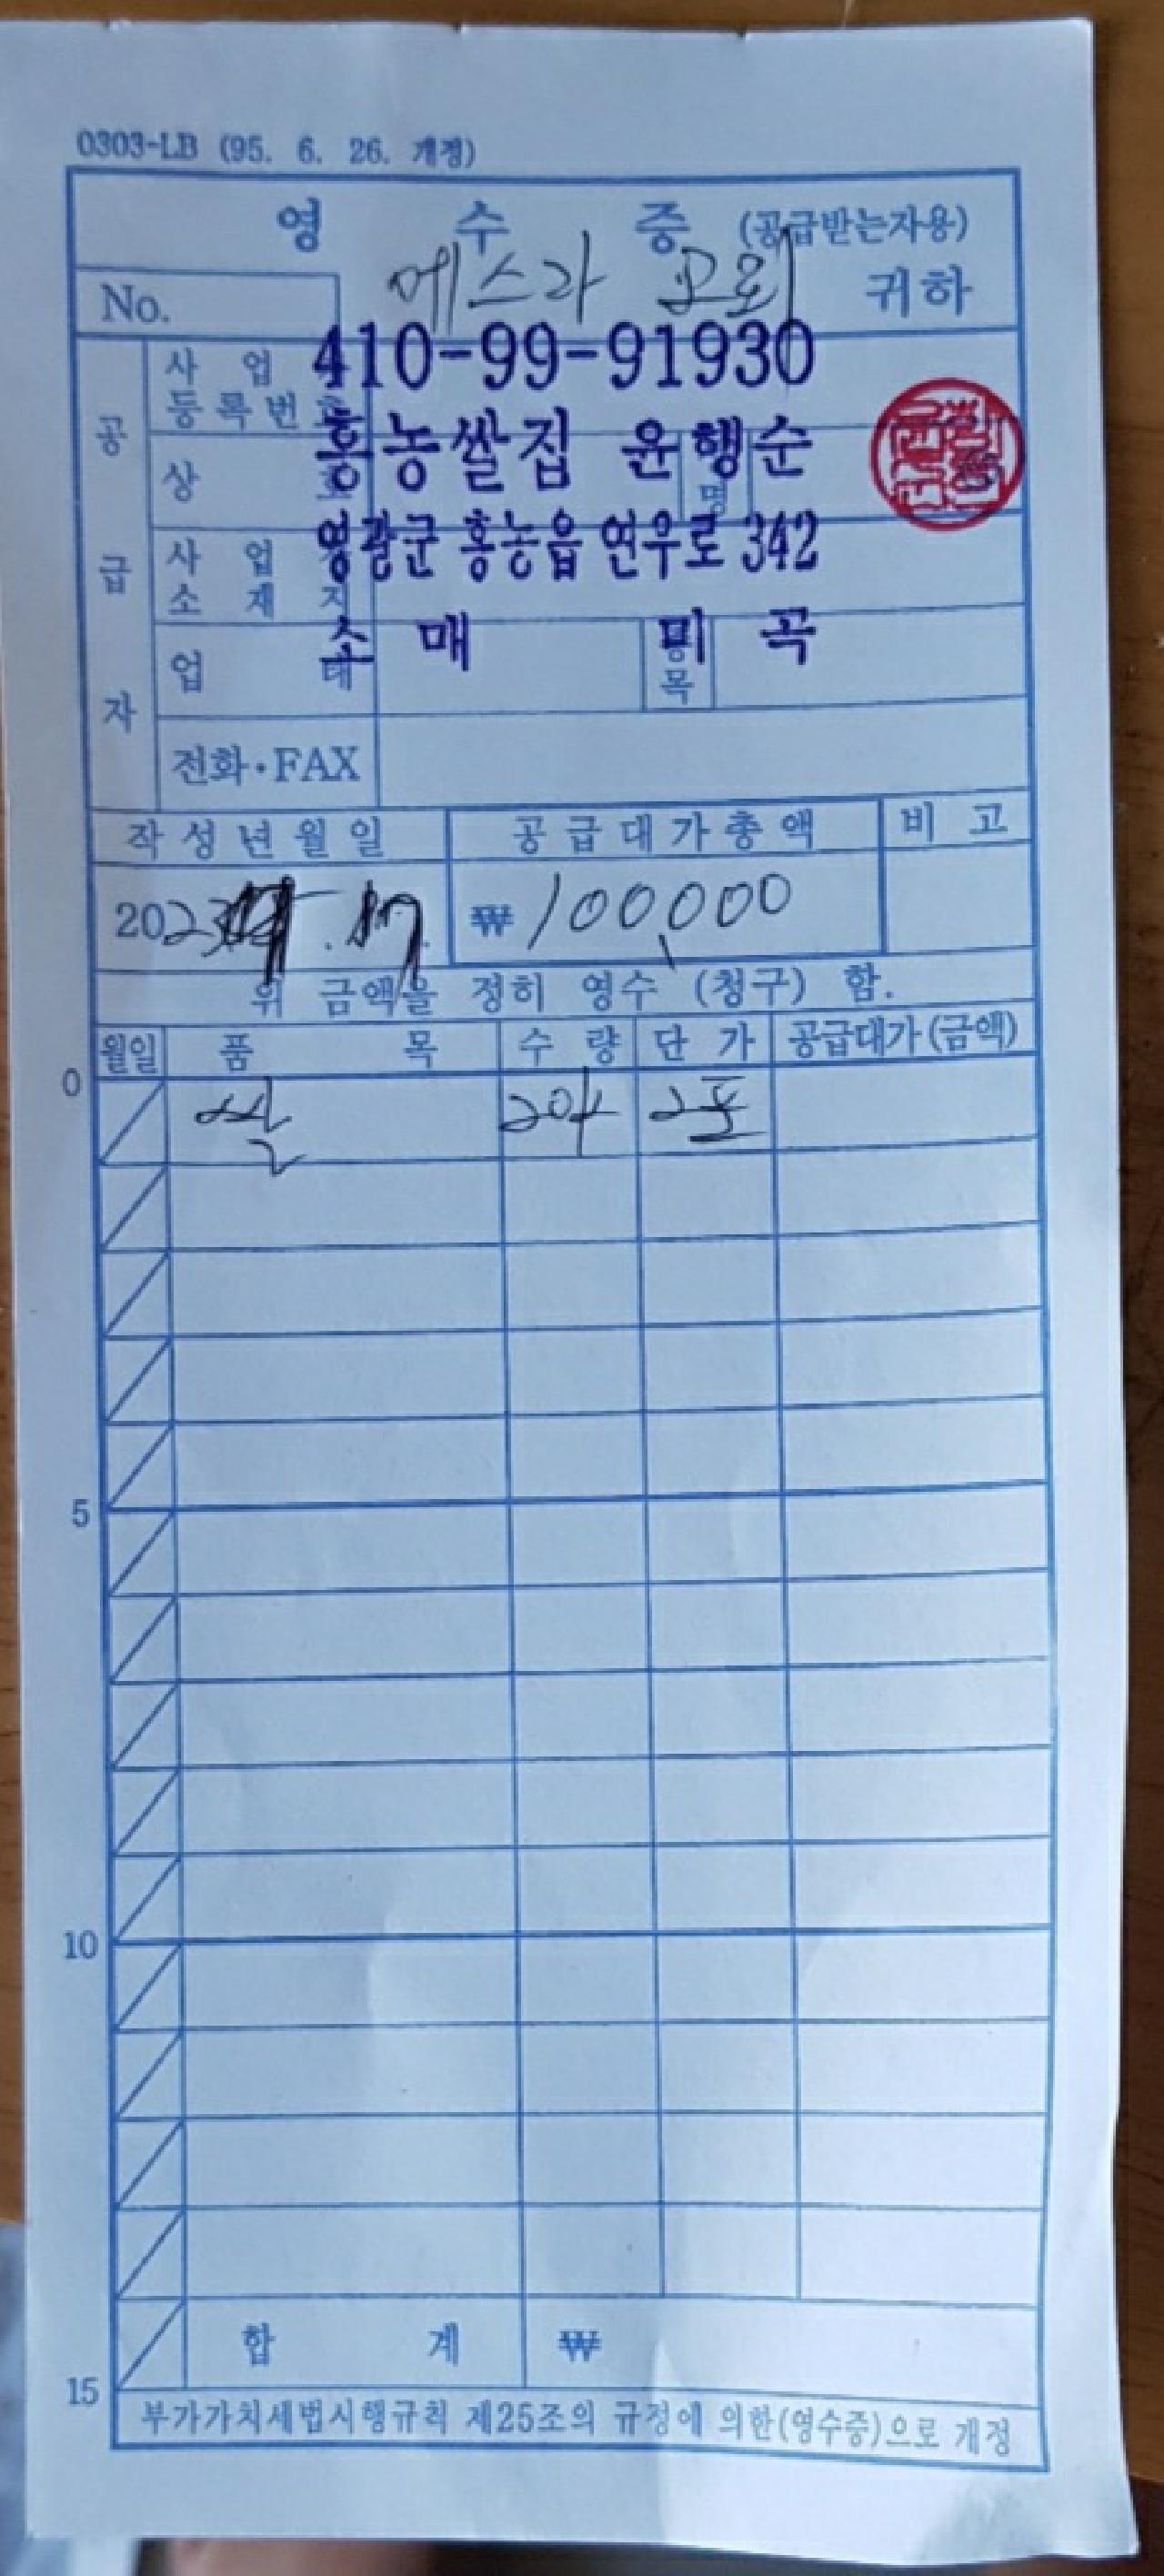 0303-LB (95. 6. 26. 개정)
영 수 증 (공급받는자용)
No. 에스라 교회 귀하
공급자
사업등록번호 410-99-91930
상호 홍농쌀집 윤행순 명
사업소재지 영광군 홍농읍 연우로 342
업태 소매 목 미곡
전화·FAX
작성년월일 공급대가총액 비고
2023 . 17. ₩ 100,000
위 금액을 정히 영수 (청구) 함.
월일 품목 수량 단가 공급대가(금액)
0
쌀 20k 2포
5
10
합계 ₩
15
부가가치세법시행규칙 제25조의 규정에 의한(영수증)으로 개정